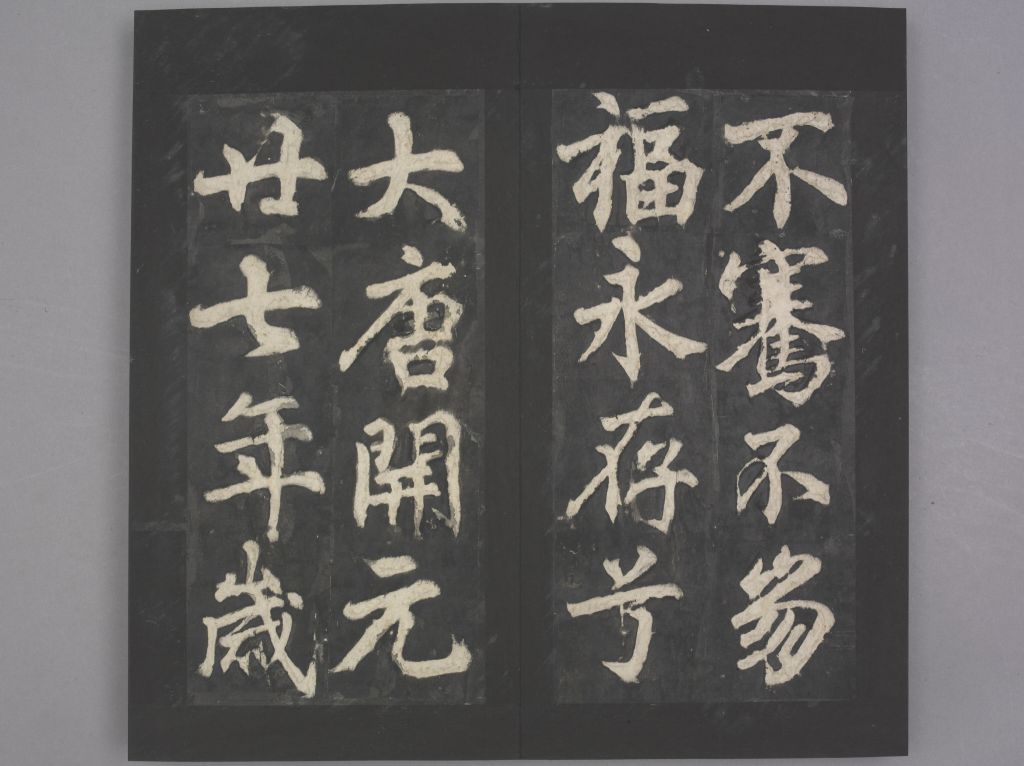 不騫不崩
福永存兮
大唐開元
廿七年歲